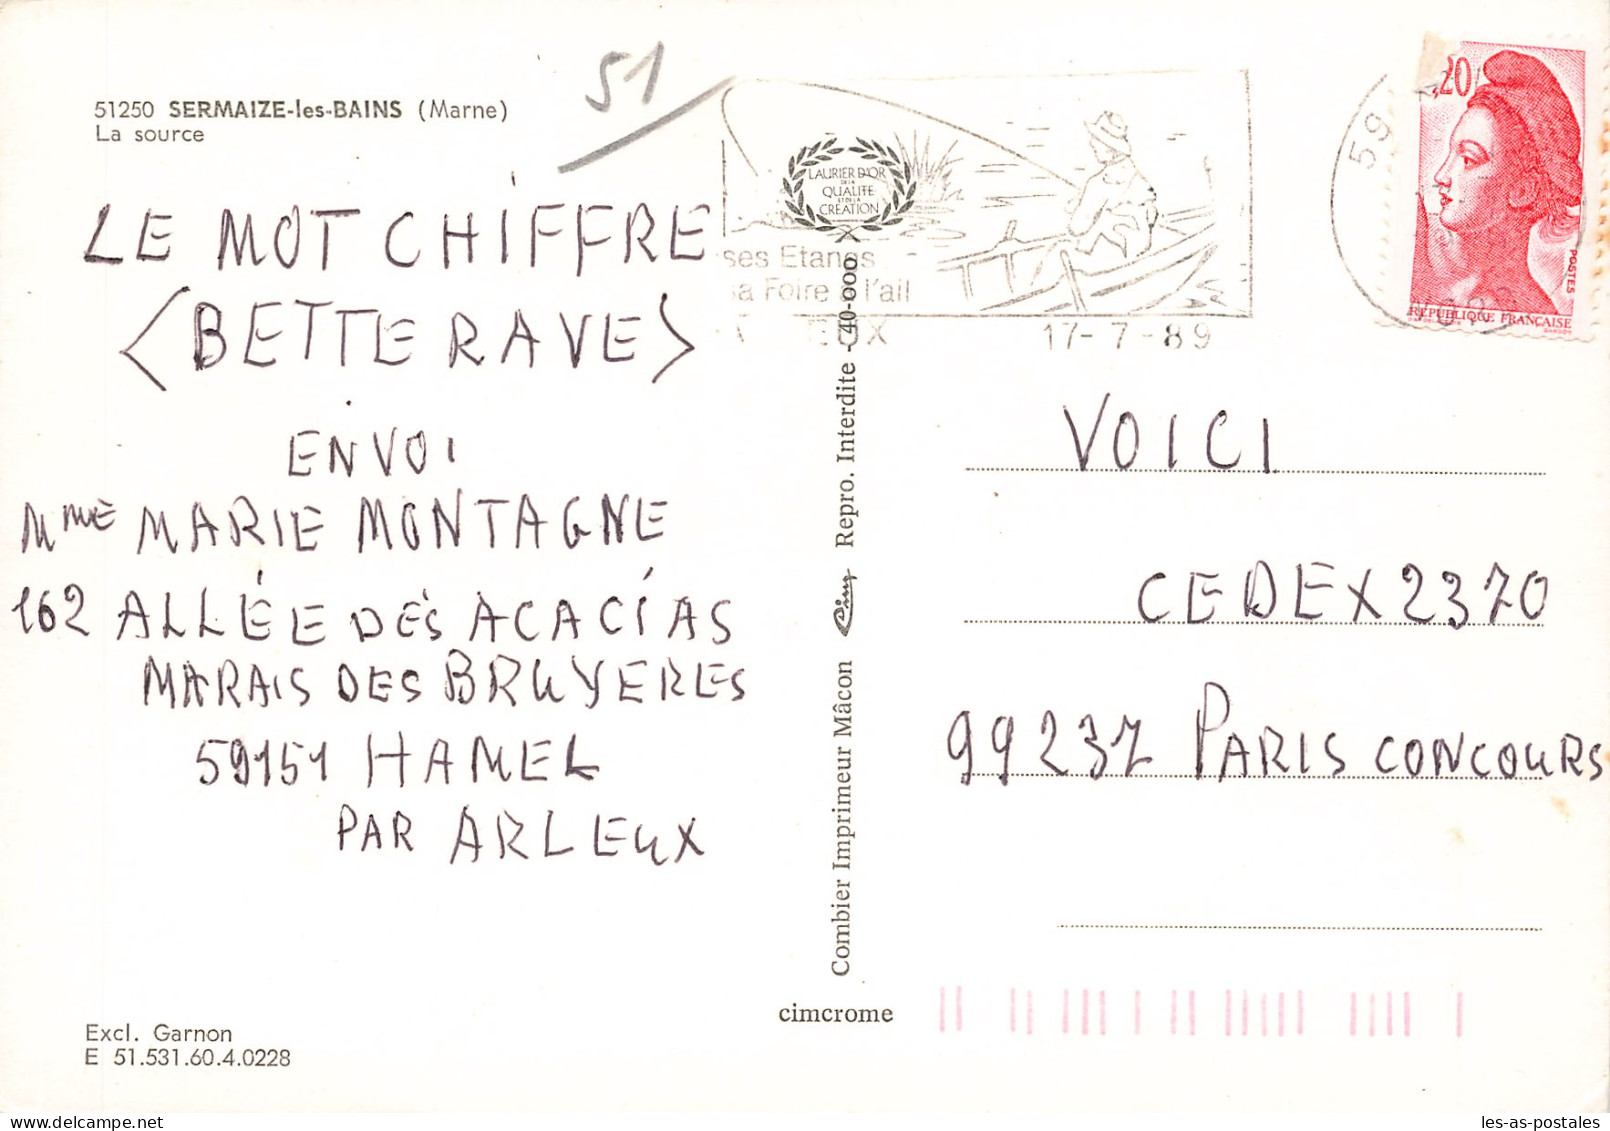 51250 SERMAIZE-les-BAINS (Marne)
La source
51
LE MOT CHIFFRE
<BETTERAVE>
ENVOI
Mme MARIE MONTAGNE
162 ALLÉE DES ACACIAS
MARAIS DES BRUYERES
59151 HAMEL
PAR ARLEUX
Excl. Garnon
E 51.531.60.4.0228
LAURIER D'OR
DE LA
QUALITE
ET DE LA
CREATION
ses Etangs
sa Foire à l'ail
EUX
17-7-89
59
20
POSTES
REPUBLIQUE FRANÇAISE
Combier Imprimeur Mâcon Cim Repro. Interdite - 40-000
cimcrome
VOICI
CEDEX 2370
99237 PARIS CONCOURS
les-as-postales